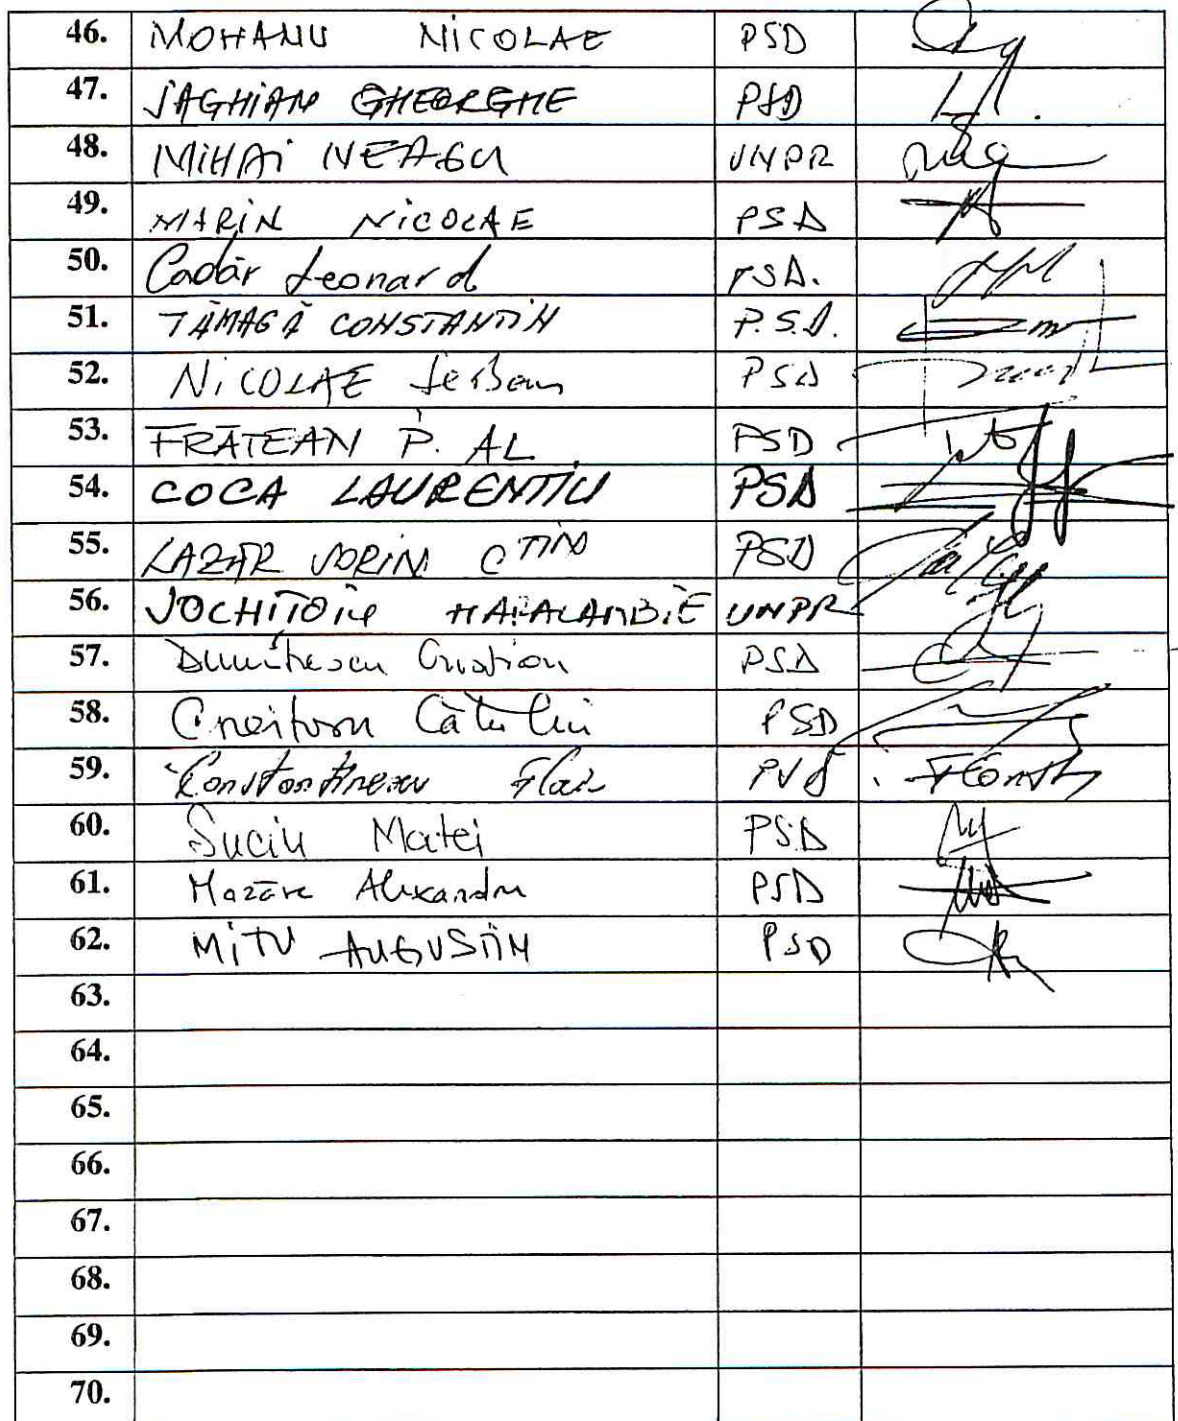 46. MOHANU NICOLAE PSD
47. JAGHIAN GHEORGHE PSD
48. MIHAI NEAGU UNPR
49. MARIN NICOLAE PSD
50. Cadăr Leonard PSD.
51. TĂMAGĂ CONSTANTIN P.S.D.
52. NICOLAE Șerban PSD
53. FRĂTEAN P. AL. PSD
54. COCA LAURENȚIU PSD
55. LAZĂR SORIN CTIN PSD
56. VOCHIȚOIU HARALAMBIE UNPR
57. Dumitrescu Cristian PSD
58. Croitoru Cătălin PSD
59. Constantinescu PSD
60. Suciu Matei PSD
61. Mazăre Alexandru PSD
62. MITU AUGUSTIN PSD
63.
64.
65.
66.
67.
68.
69.
70.